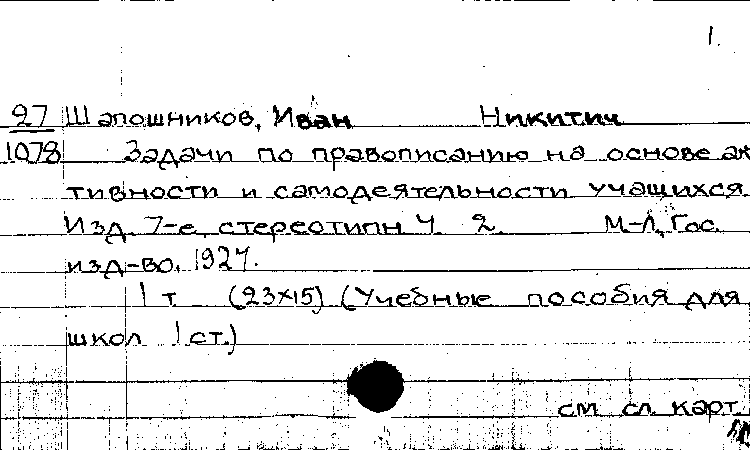 1.
27 Шапошников, Иван Никитич
1078 Задачи по правописанию на основе ак
тивности и самодеятельности учащихся
Изд. 7-е, стереотипн Ч. 2. М-Л, Гос.
изд-во, 1927.
1 т (23х15) (Учебные пособия для
школ 1 ст.)
см сл. карт.